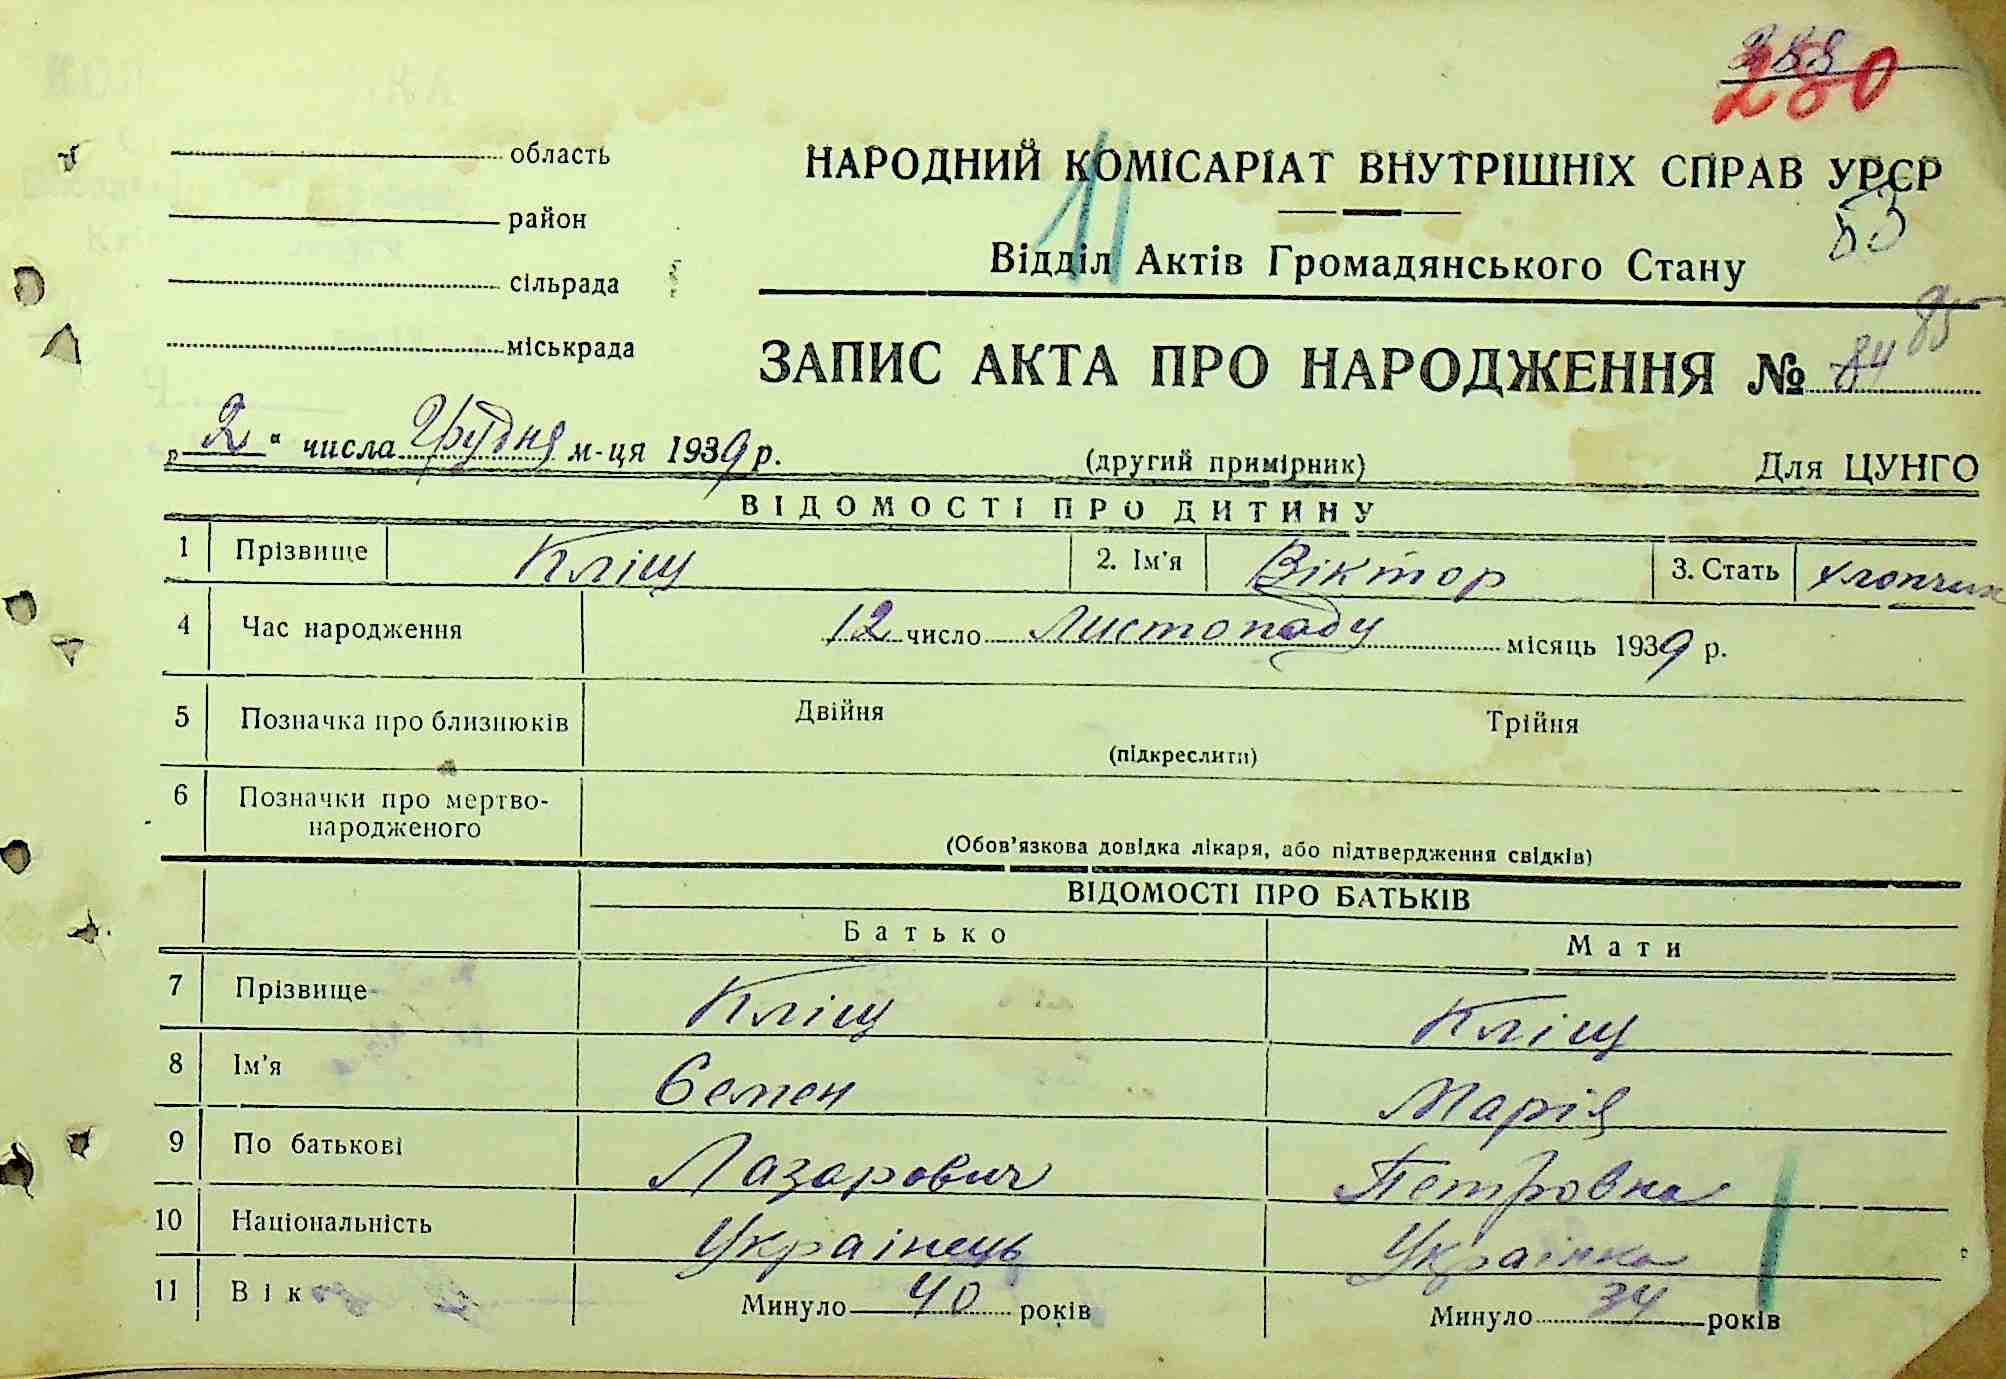 288
280
область
НАРОДНИЙ КОМІСАРІАТ ВНУТРІШНІХ СПРАВ УРСР
район
53
Відділ Актів Громадянського Стану
11
сільрада
міськрада
ЗАПИС АКТА ПРО НАРОДЖЕННЯ № 84 85
„ 2 “ числа Грудня м-ця 1939 р. (другий примірник) Для ЦУНГО
ВІДОМОСТІ ПРО ДИТИНУ
1 Прізвище Кліщ 2. Ім'я Віктор 3. Стать хлопчик
4 Час народження 12 число Листопаду місяць 1939 р.
5 Позначка про близнюків Двійня Трійня
(підкреслити)
6 Позначки про мертво-
народженого
(Обов'язкова довідка лікаря, або підтвердження свідків)
ВІДОМОСТІ ПРО БАТЬКІВ
Батько Мати
7 Прізвище Кліщ Кліщ
8 Ім'я Семен Марія
9 По батькові Лазарович Петровна
10 Національність Украінець Украінка
11 Вік Минуло 40 років Минуло 34 років